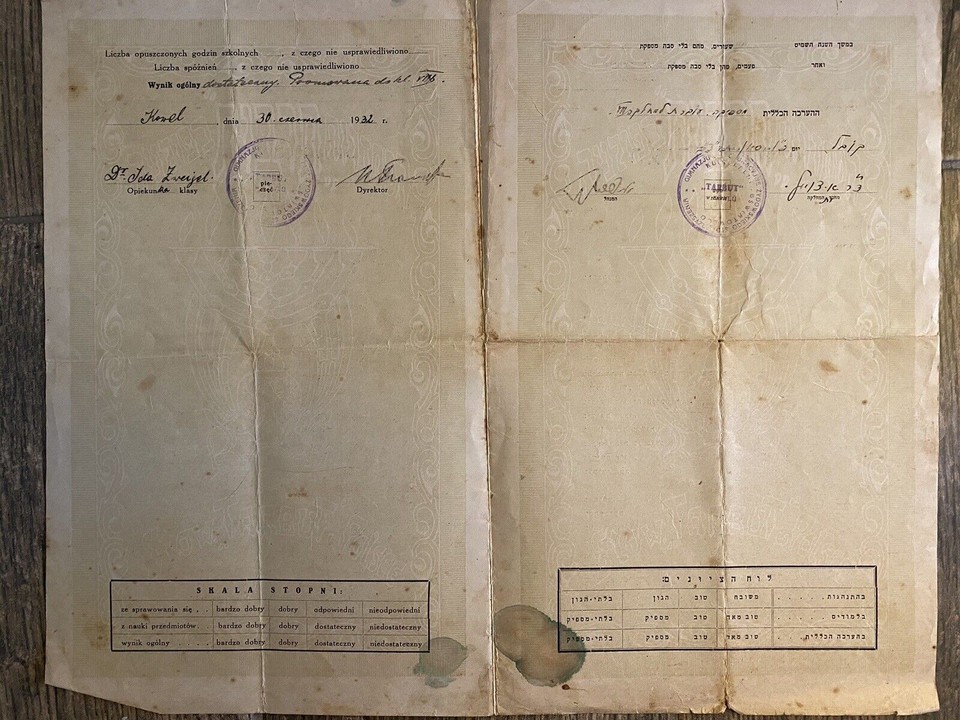 Liczba opuszczonych godzin szkolnych ......, z czego nie usprawiedliwiono
Liczba spóźnień ......, z czego nie usprawiedliwiono
Wynik ogólny dostateczny. Promowana do kl. VIII
Kowel, dnia 30 czerwca 1932 r.
Dr Ida Zweigel.
Opiekunka klasy
pieczęć
Dyrektor
SKALA STOPNI:
ze sprawowania się . . bardzo dobry dobry odpowiedni nieodpowiedni
z nauki przedmiotów. bardzo dobry dobry dostateczny niedostateczny
wynik ogólny . . bardzo dobry dobry dostateczny niedostateczny
במשך השנה החסיר שעורים, מהם בלי סבה מספקת
ואחר פעמים, מהן בלי סבה מספקת
ההערכה הכללית מספיקה. עוברת למחלקה VIII
קובל יום
"TARBUT"
המנהל
לוח הציונים:
בהתנהגות . . . . משובח טוב הגון בלתי-הגון
בלמודים . . . . טוב מאד טוב מספיק בלתי-מספיק
בהערכה הכללית. . . טוב מאד טוב מספיק בלתי-מספיק